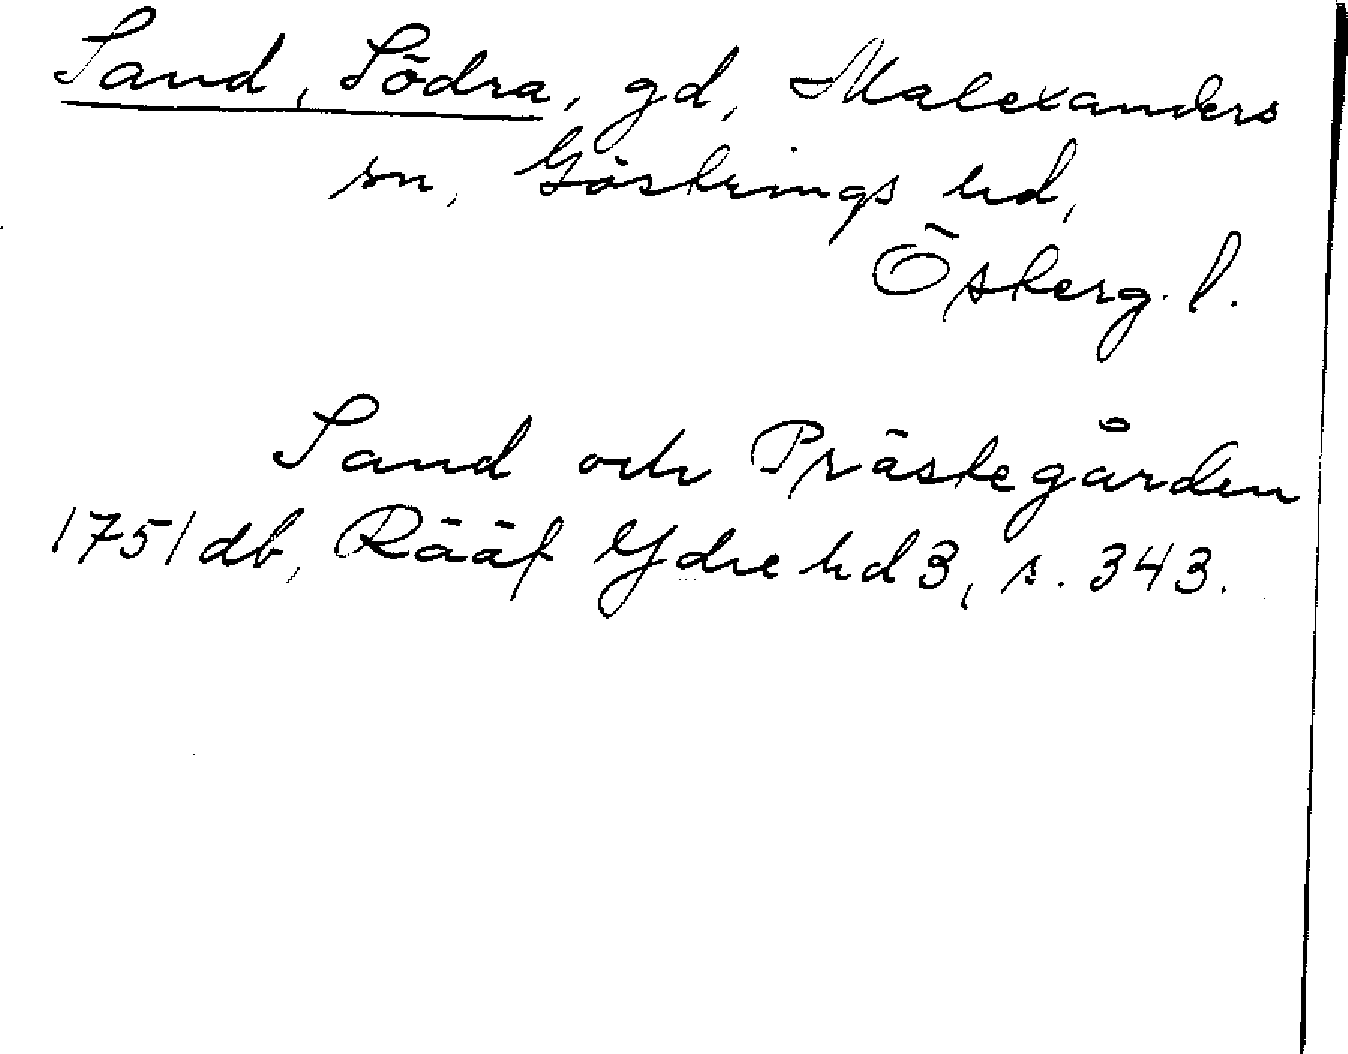 Sand, Södra, gd, Malexanders
sn, Göstrings hd,
Österg. l.
Sand och Prästegården
1751 db, Rääf Ydre hd 3, s. 343.